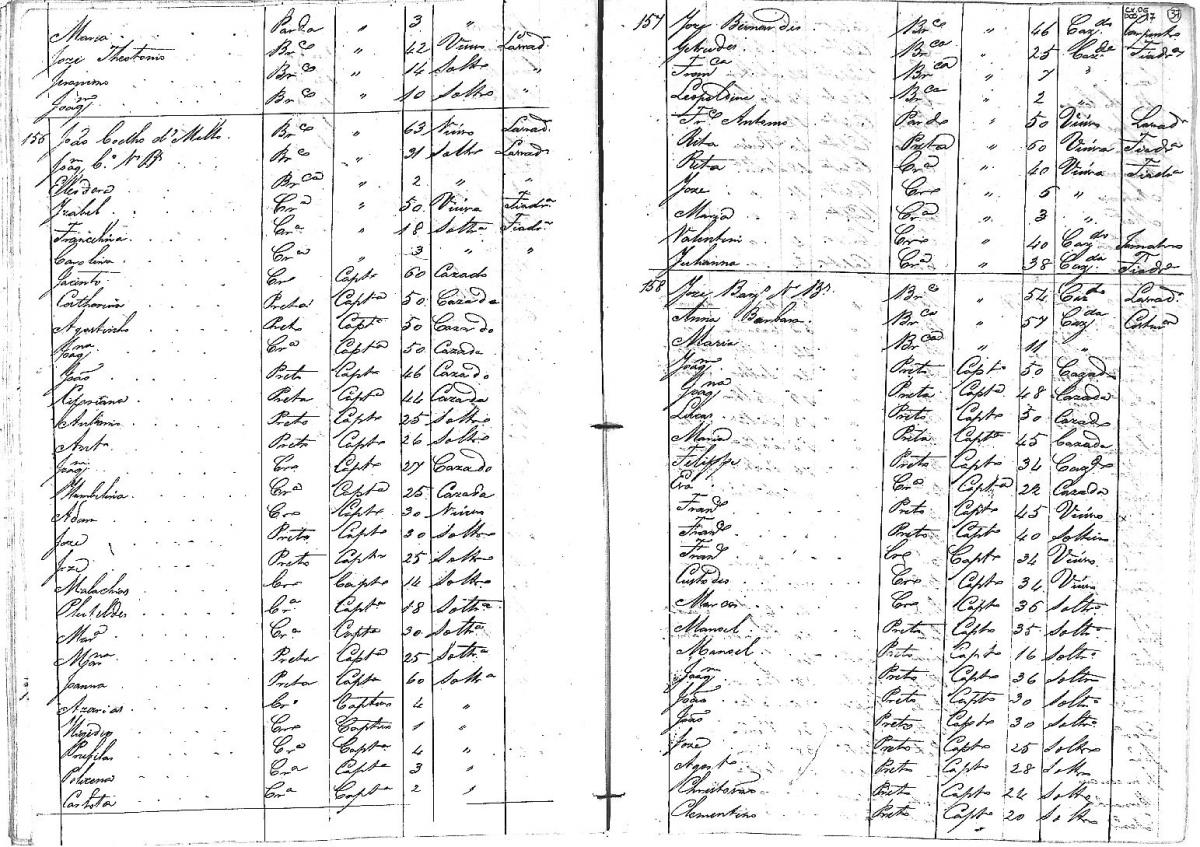 Maria Parda " 3 "
Joze Theotonio Brco " 42 Viuvo Lavrad
Jeronimo Brco " 14 Soltro "
Joaqm Brco " 10 Soltro "
156 João Coelho d'Mello Brco " 63 Viuvo Lavrad
Joaqm Brco " 31 Soltro Lavrad
Elizidora Brca " 2 " "
Izabel Cra " 50 Viuva Fiadra
Francelina Cra " 18 Soltra Fiadra
Carolina Cra " 3 " "
Jacinto Cro Capto 60 Cazado
Catharina Preta Capta 50 Cazada
Agostinho Preto Capto 50 Cazado
Joaqna Cra Capta 50 Cazada
João Preto Capto 46 Cazado
Cipriana Preta Capta 44 Cazada
Antonio Preto Capto 25 Soltro
Anto Preto Capto 26 Soltro
Joaqm Cro Capto 27 Cazado
Humbelina Cra Capta 25 Cazada
Adam Cro Capto 30 Viuvo
Joze Preto Capto 30 Soltro
Joze Preto Capto 25 Soltro
Malachias Cro Capto 14 Soltro
Cra Capta 18 Soltra
Mara Cra Capta 30 Soltra
Preta Capta 25 Soltra
Joanna Preta Capta 60 Soltra
Azarias Cro Captivo 4 "
Cro Captivo 1 "
Cra Capta 4 "
Polixena Cra Capta 3 "
Carlota Cra Capta 2 "
CX.06 DOC 17 37
157 Joze Bernardes Brco " 46 Cazdo Carpintro
Getrudes Brca " 25 Cazda Fiadra
Franca Brca " 7 "
Leopoldina Brca " 2 "
Antonio Pardo " 50 Viuvo Lavrad
Rita Preta " 60 Viuva Fiadra
Rita Cra " 40 Viuva Fiadra
Joze Cro " 5 "
Maria Cra " 3 "
Valentim Cro " 40 Cazdo
Juliana Cra " 38 Cazda Fiadra
158 Joze Brco " 54 Cazdo Lavrad
Anna Barbara Brca " 57 Cazda Costura
Maria Brca " 11 "
Joaqm Preto Capto 50 Cazado
Joaqna Preta Capta 48 Cazada
Lucas Preto Capto 50 Cazado
Maria Preta Capta 45 Cazada
Felippe Preto Capto 34 Cazdo
Eva Cra Capta 22 Cazada
Franco Preto Capto 45 Viuvo
Franco Preto Capto 40 Solteiro
Franco Cro Capto 34 Viuvo
Custodio Cro Capto 34 Viuvo
Marcos Cro Capto 36 Soltro
Manoel Preto Capto 35 Soltro
Manoel Preto Capto 16 Soltro
Joaqm Preto Capto 36 Soltro
João Preto Capto 30 Soltro
João Preto Capto 30 Soltro
Joze Preto Capto 25 Soltro
Agosto Preto Capto 28 Soltro
Christovão Preto Capto 24 Soltro
Clementino Preto Capto 20 Soltro